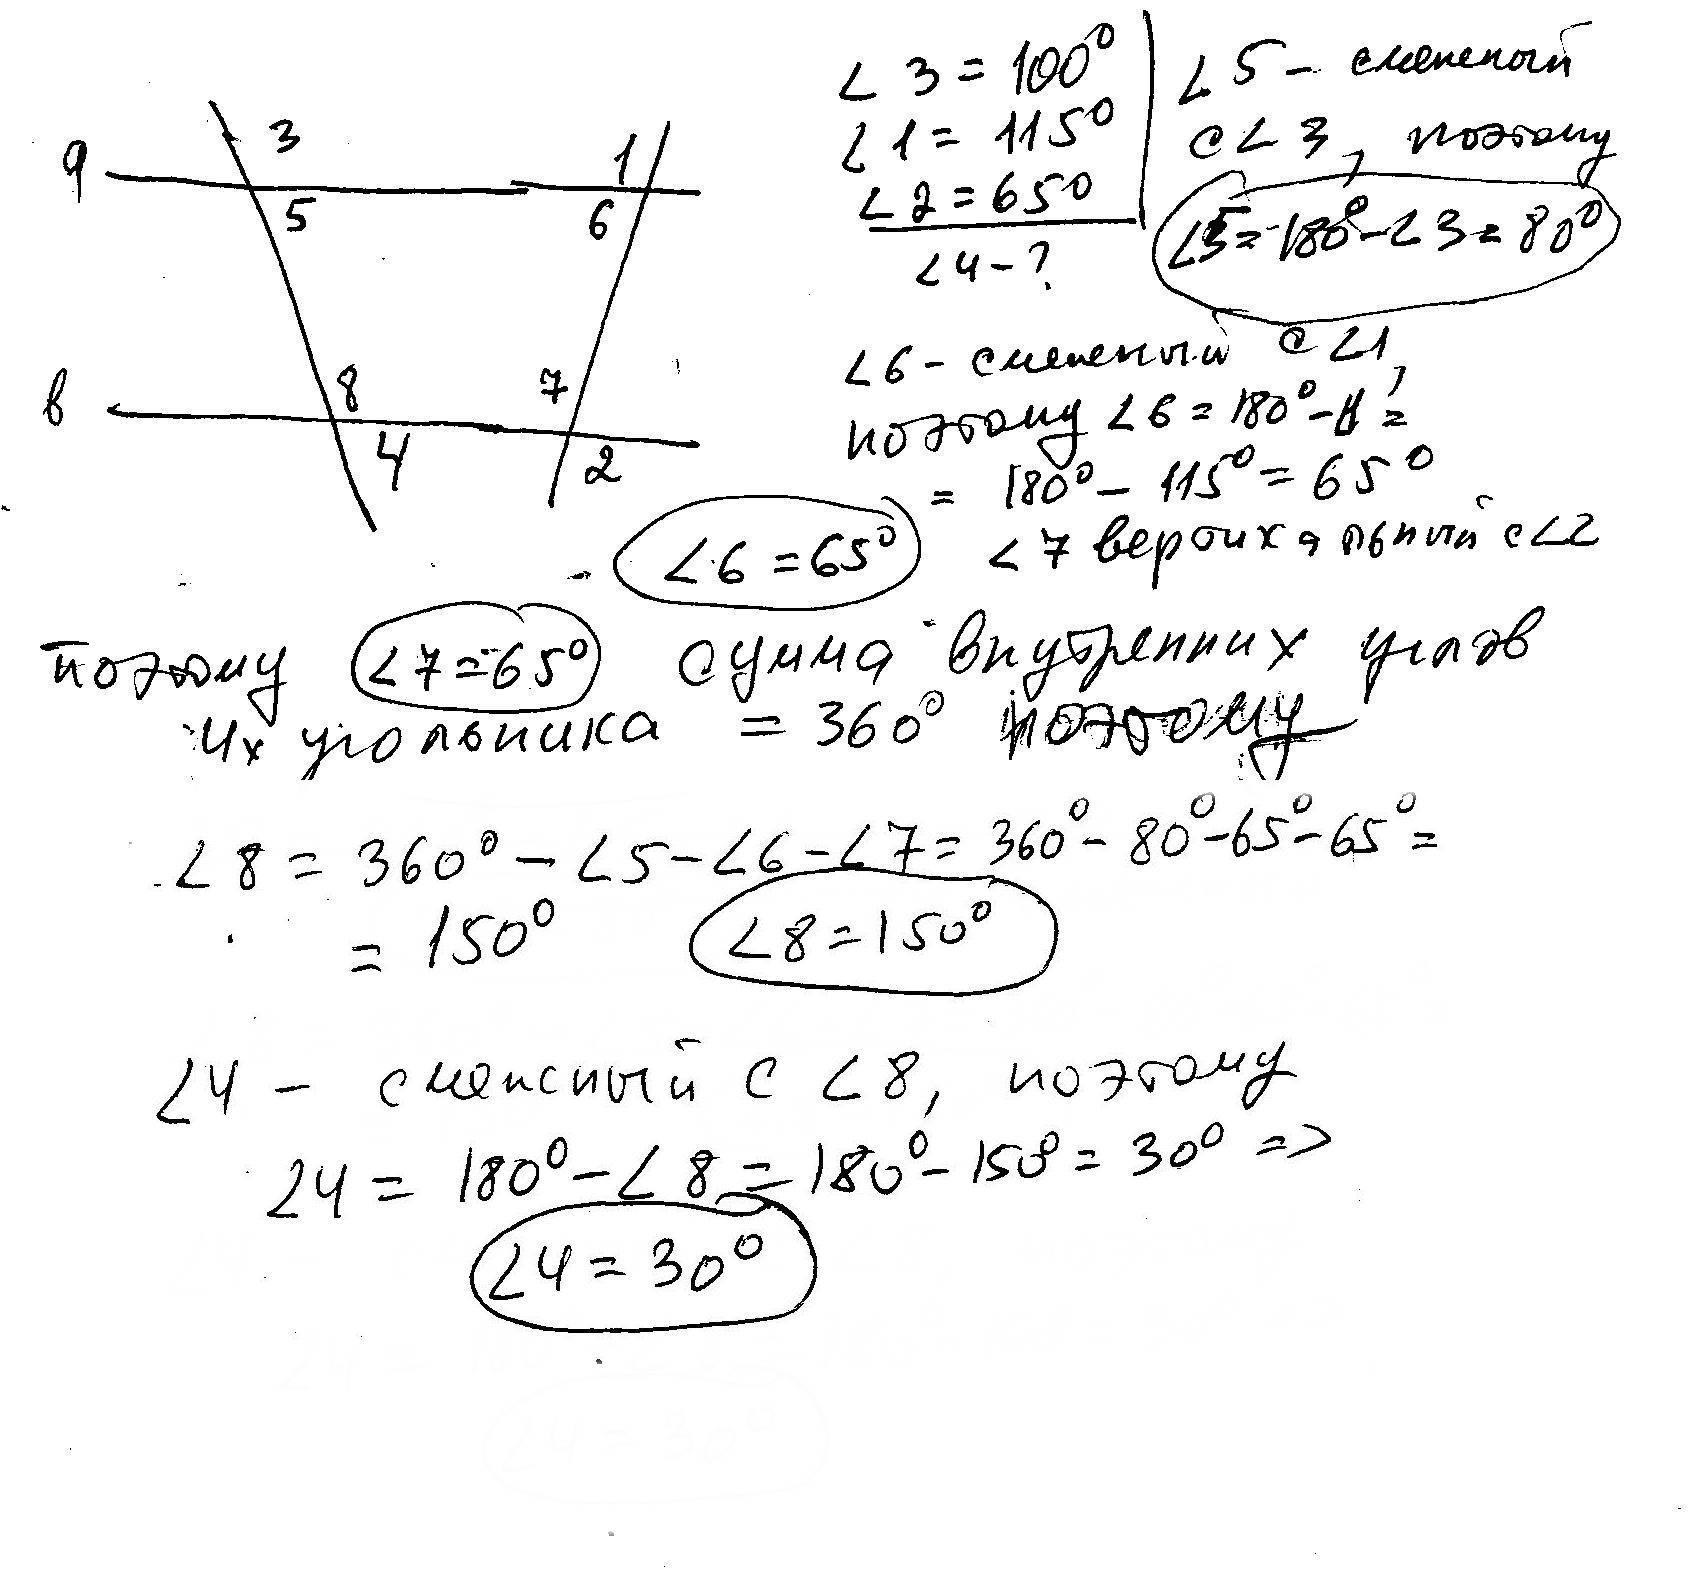 3
1
a
5
6
8
7
в
4
2
∠3 = 100°
∠1 = 115°
∠2 = 65°
∠4 - ?
∠5 - смежный
с ∠3, поэтому
∠5 = 180° - ∠3 = 80°
∠6 - смежный с ∠1,
поэтому ∠6 = 180° - ∠1 =
= 180° - 115° = 65°
∠6 = 65°
∠7 вертикальный с ∠2
поэтому ∠7 = 65° сумма внутренних углов
4х угольника = 360° поэтому
∠8 = 360° - ∠5 - ∠6 - ∠7 = 360° - 80° - 65° - 65° =
= 150° ∠8 = 150°
∠4 - смежный с ∠8, поэтому
∠4 = 180° - ∠8 = 180° - 150° = 30° =>
∠4 = 30°